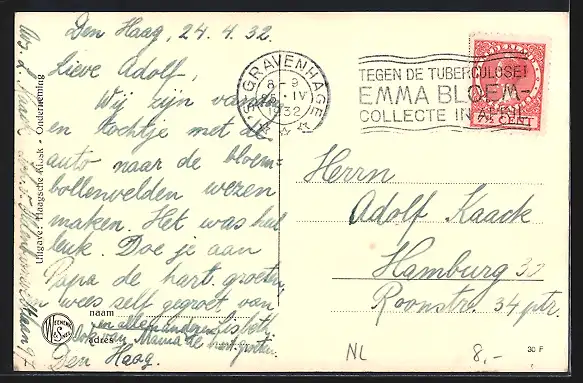 Den Haag, 24.4.32.
Lieve Adolf,
Wij zijn vandaag
en tochtje met de
auto naar de bloem-
bollenvelden wezen
maken. Het was heel
leuk. Doe je aan
Papa de hart. groeten
en wees self gegroet van
en alle anderen Lisbeth
Ook van Mama de hart. groeten.
Den Haag.
naam
adres
Uitgave: Haagsche Kiosk - Onderneming
WEENENK & SNEL
's-GRAVENHAGE
8-9
IV
1932
TEGEN DE TUBERCULOSE!
EMMA BLOEM-
COLLECTE IN APRIL
NEDERLAND
7½ CENT
Herrn
Adolf Kaack
Hamburg 33
Roonstr. 34 ptr.
NL
8,-
30 F